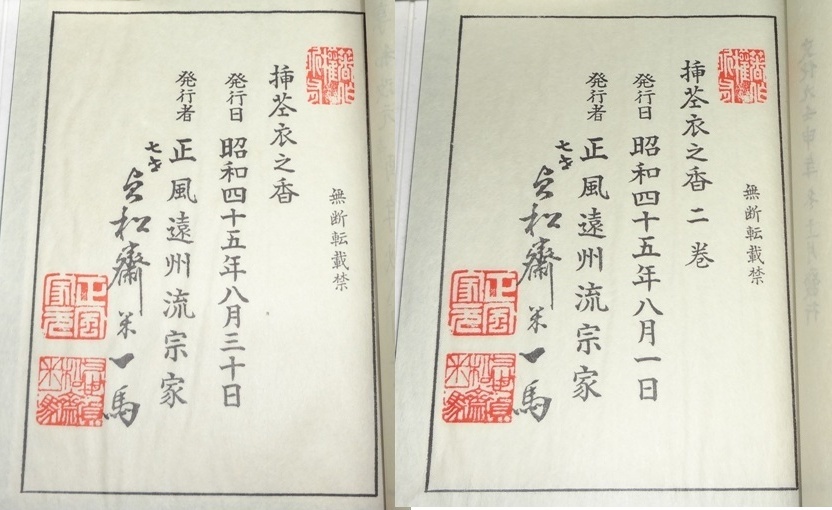 無断転載禁
挿荃衣之香
発行日 昭和四十五年八月三十日
発行者 正風遠州流宗家
七世 貞松齋 米一馬
無断転載禁
挿荃衣之香 二巻
発行日 昭和四十五年八月一日
発行者 正風遠州流宗家
七世 貞松齋 米一馬